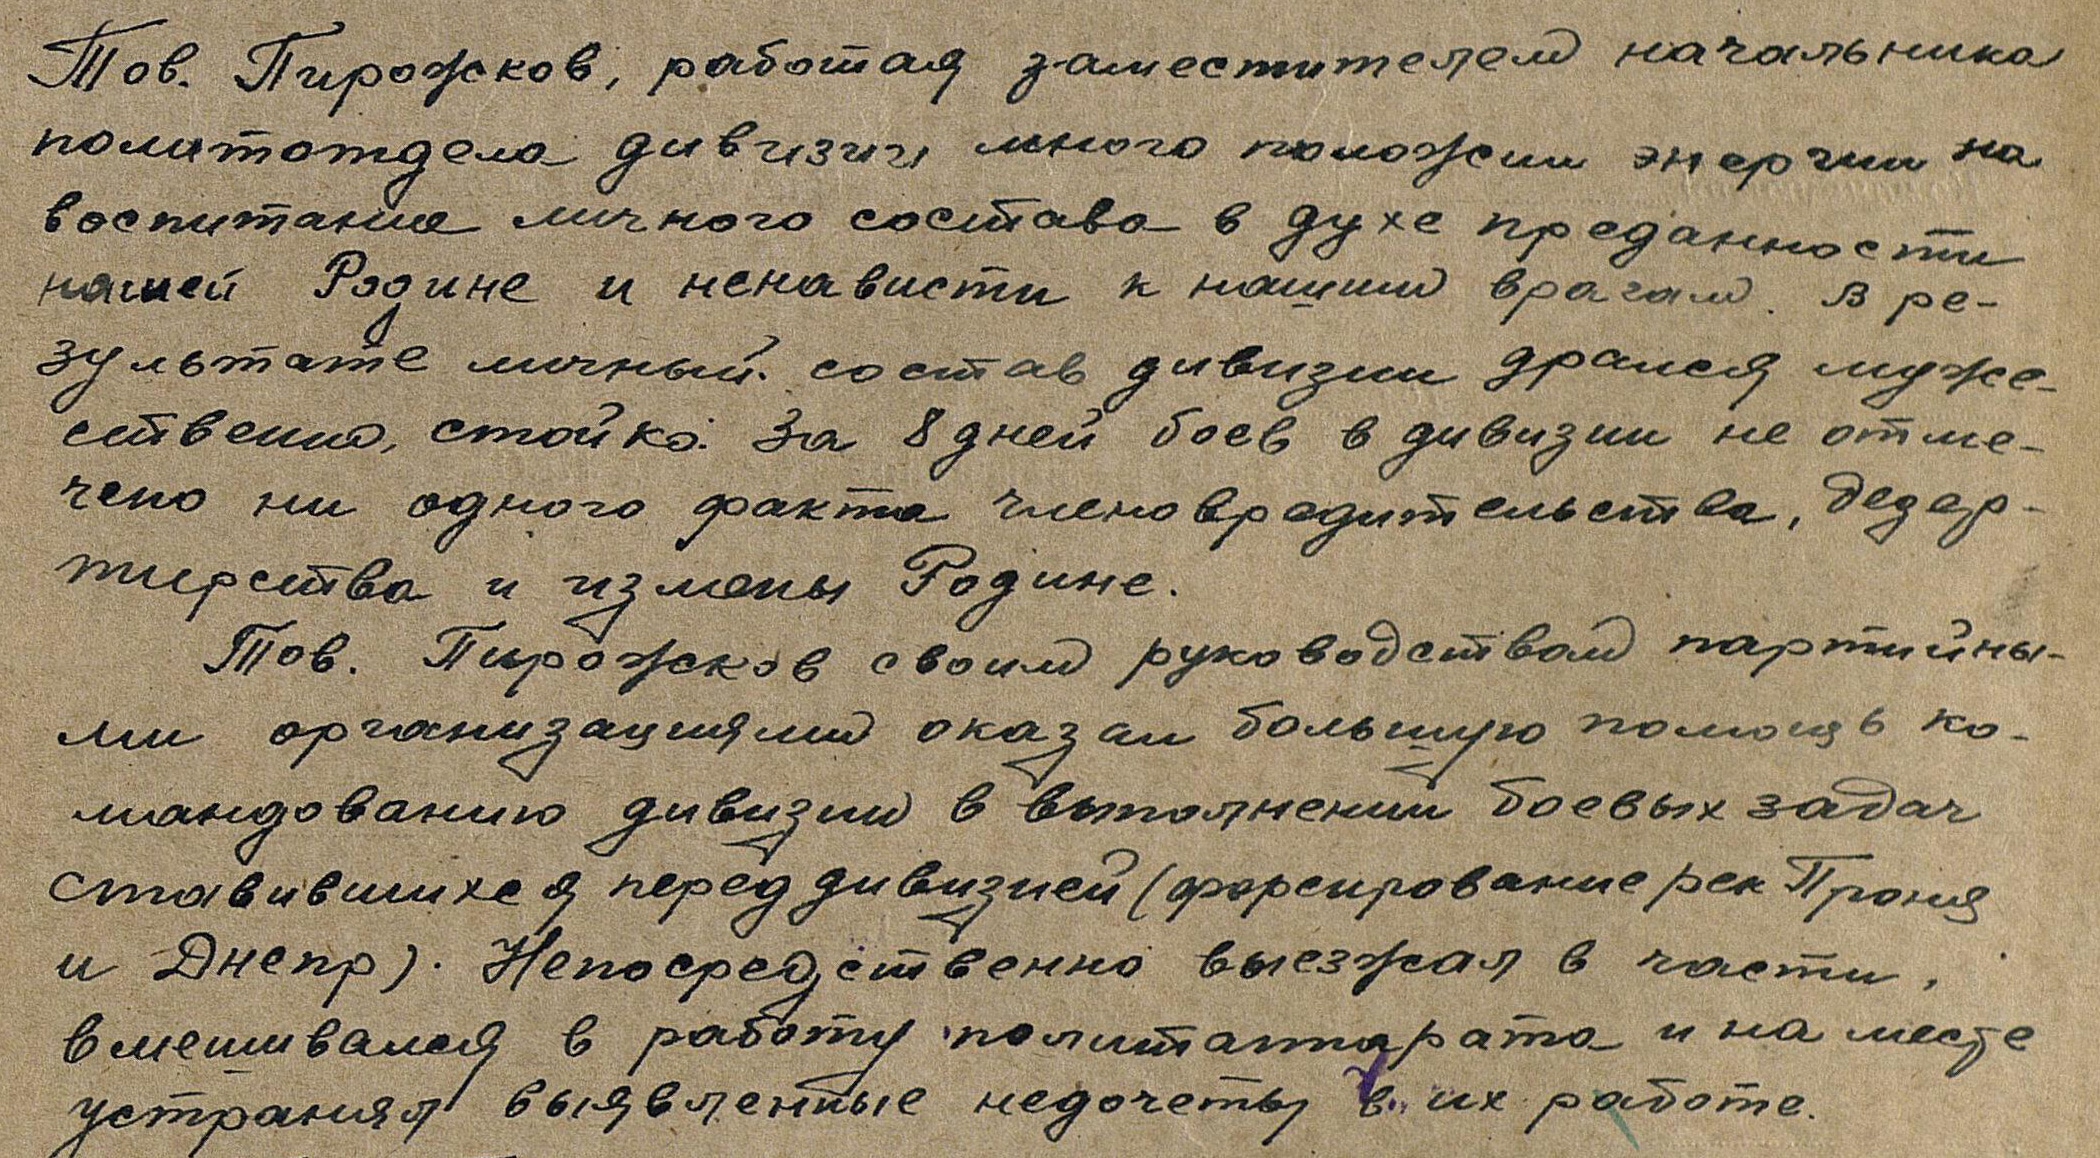 Тов. Пирожков, работая заместителем начальника
политотдела дивизии много положил энергии на
воспитание личного состава в духе преданности
нашей Родине и ненависти к нашим врагам. В ре-
зультате личный состав дивизии дрался муже-
ственно, стойко. За 8 дней боев в дивизии не отме-
чено ни одного факта членовредительства, дезер-
тирства и измены Родине.
Тов. Пирожков своим руководством партийны-
ми организациями оказал большую помощь ко-
мандованию дивизии в выполнении боевых задач
ставившихся перед дивизией (форсирование рек Проня
и Днепр). Непосредственно выезжал в части,
вмешивался в работу политаппарата и на месте
устранял выявленные недочеты в их работе.